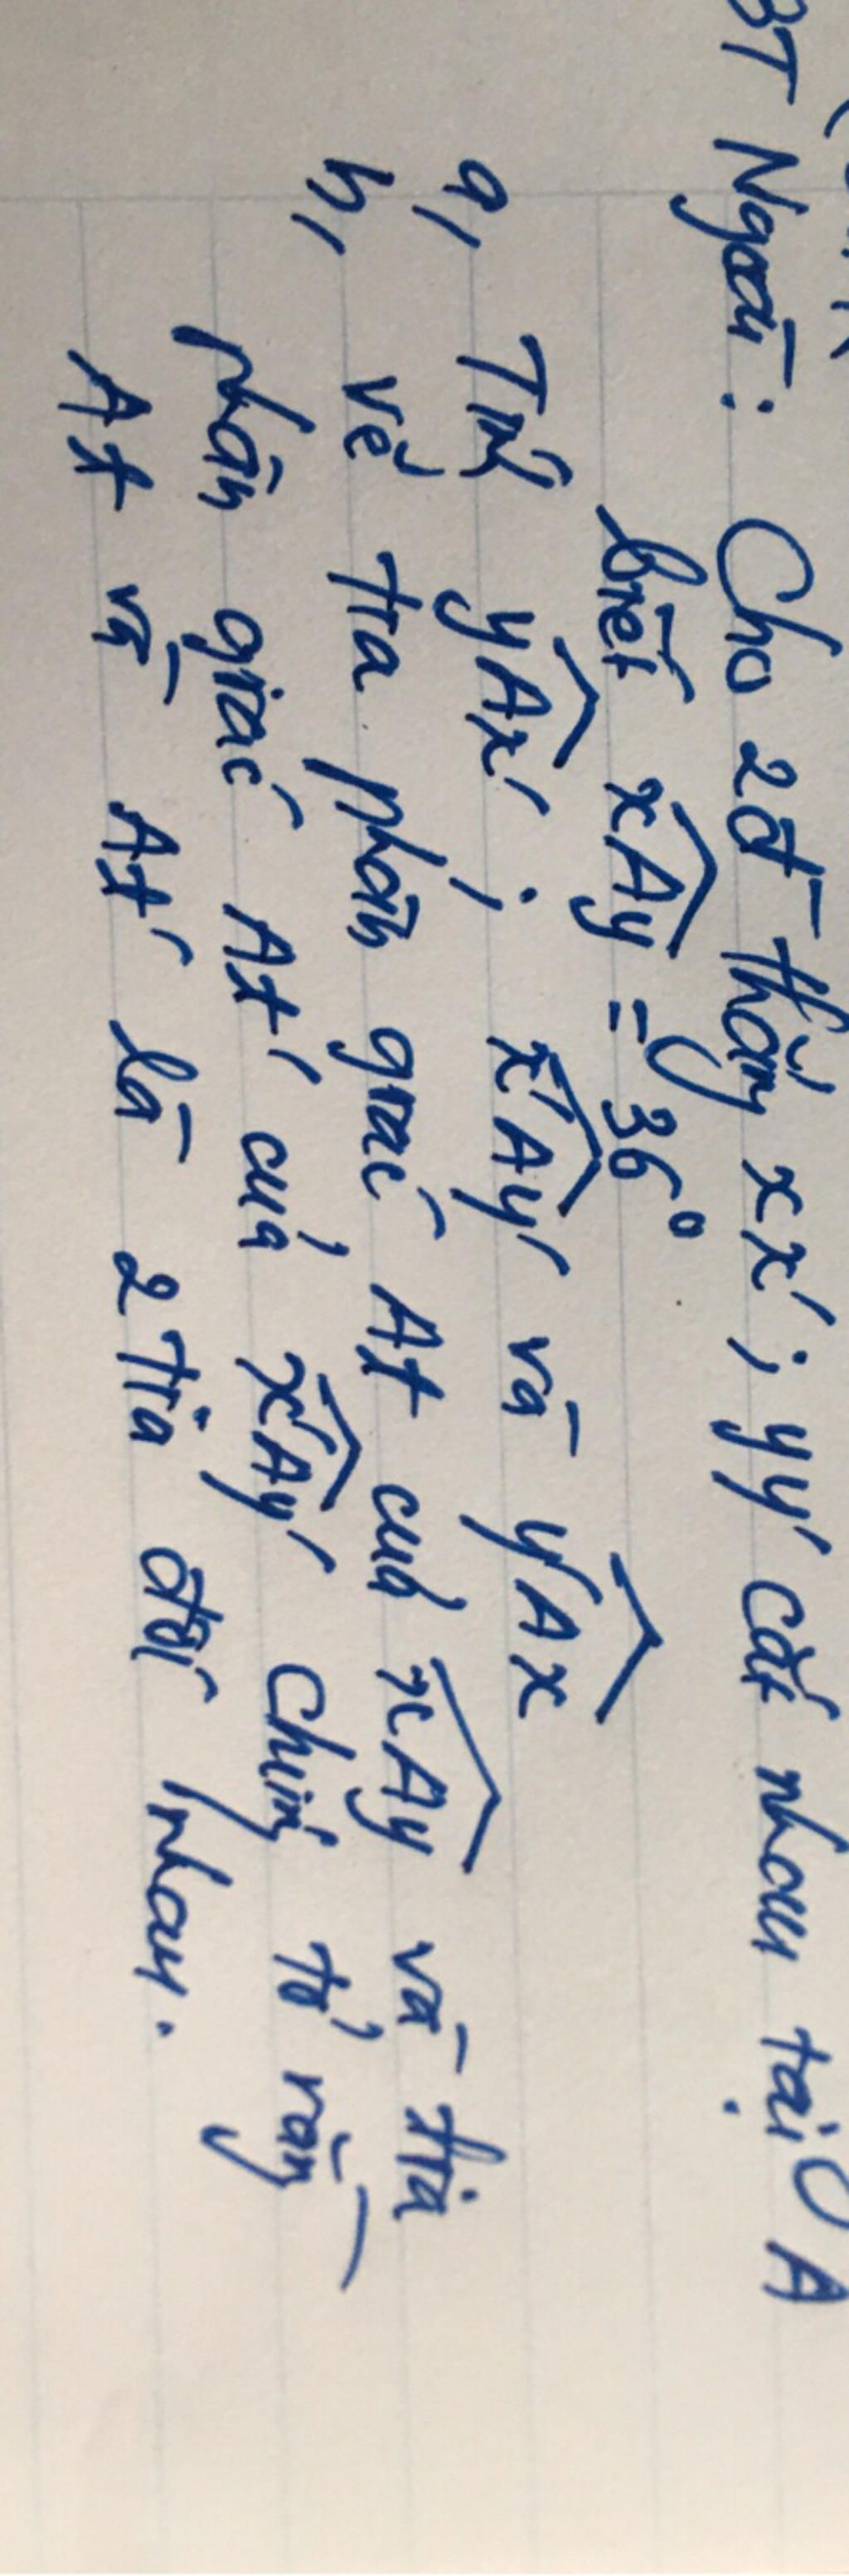 BT Ngoài: Cho 2đ thẳng xx'; yy' cắt nhau tại A
biết xAy = 36°
a, Tính yAx'; x'Ay' và y'Ax
b, Vẽ tia phân giác At của xAy và tia
phân giác At' của x'Ay' Chứng tỏ rằng
At và At' là 2 tia đối nhau.